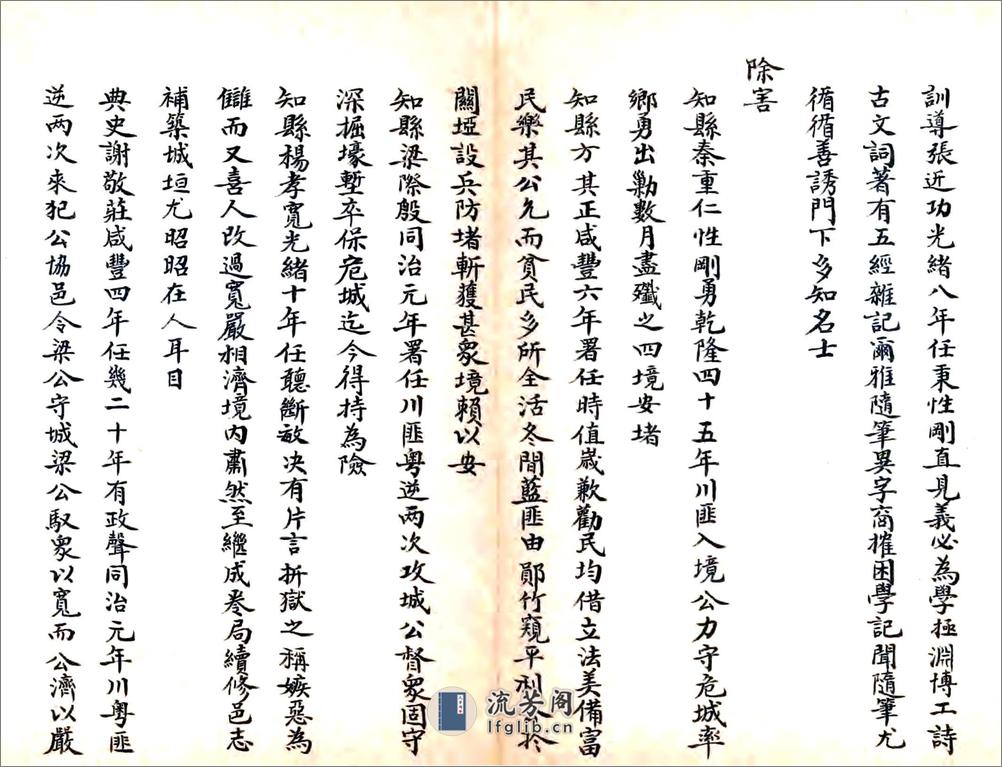 訓導張近功光緒八年任秉性剛直見義必為學極淵博工詩
古文詞著有五經雜記爾雅隨筆異字商搉困學記聞隨筆尤
循循善誘門下多知名士
除害
知縣秦重仁性剛勇乾隆四十五年川匪入境公力守危城率
鄉勇出勦數月盡殲之四境安堵
知縣方其正咸豐六年署任時值歲歉勸民均借立法美備富
民樂其公允而貧民多所全活冬間藍匪由鄖竹窺平利公於
關埡設兵防堵斬獲甚眾境賴以安
知縣梁際殷同治元年署任川匪粵逆两次攻城公督眾固守
深掘壕塹卒保危城迄今得持為險
知縣楊孝寬光緒十年任聽斷敏决有片言折獄之稱嫉惡為
讎而又喜人改過寬嚴相濟境内肅然至繼成巻局續修邑志
補築城垣尤昭昭在人耳目
典史謝敬莊咸豐四年任幾二十年有政聲同治元年川粵匪
逆两次來犯公協邑令梁公守城梁公馭眾以寬而公濟以嚴
流芳阁
lfglib.cn